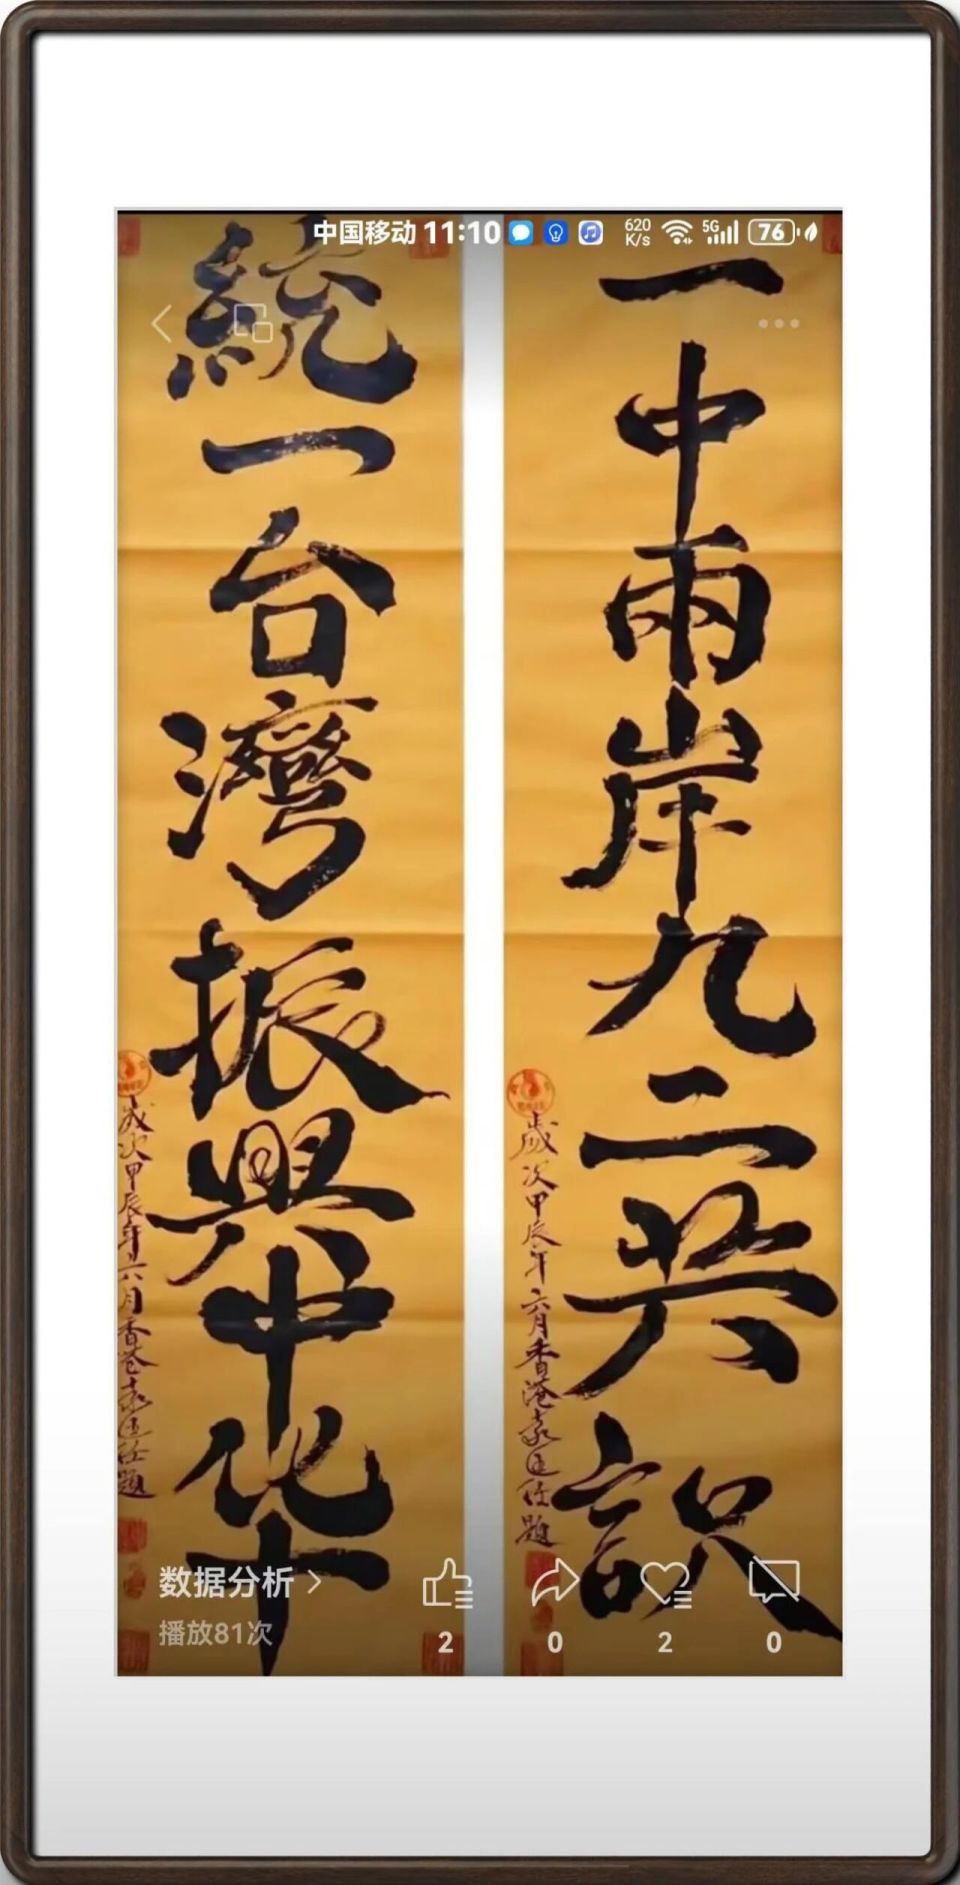 中国移动 11:10 620 K/s 5G 76
一中兩岸九二共識
歲次甲辰年六月香港袁匡任題
統一台灣振興中华
歲次甲辰年六月香港袁匡任題
数据分析
播放81次
2 0 2 0